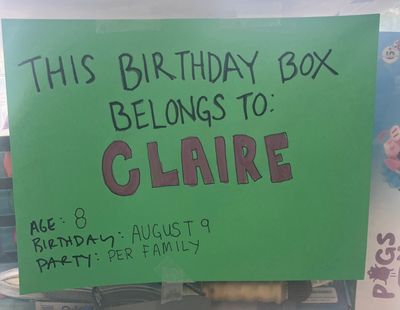 THIS BIRTHDAY BOX
BELONGS TO:
CLAIRE
AGE: 8
BIRTHDAY: AUGUST 9
PARTY: PER FAMILY
PIGS